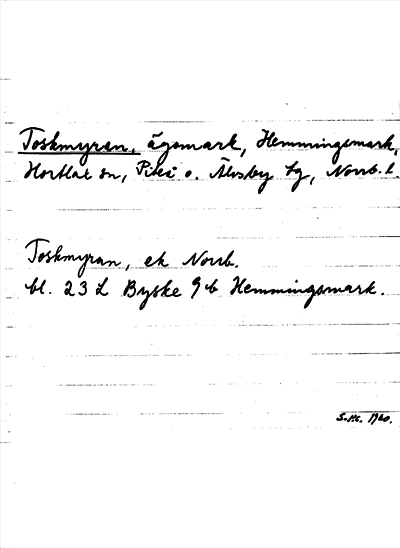 Toskmyran, ägomark, Hemmingsmark,
Hortlax sn, Piteå o. Älvsby tg, Norrb. l.
Toskmyran, ek Norrb.
bl. 23 L Byske 9 b Hemmingsmark.
1960.